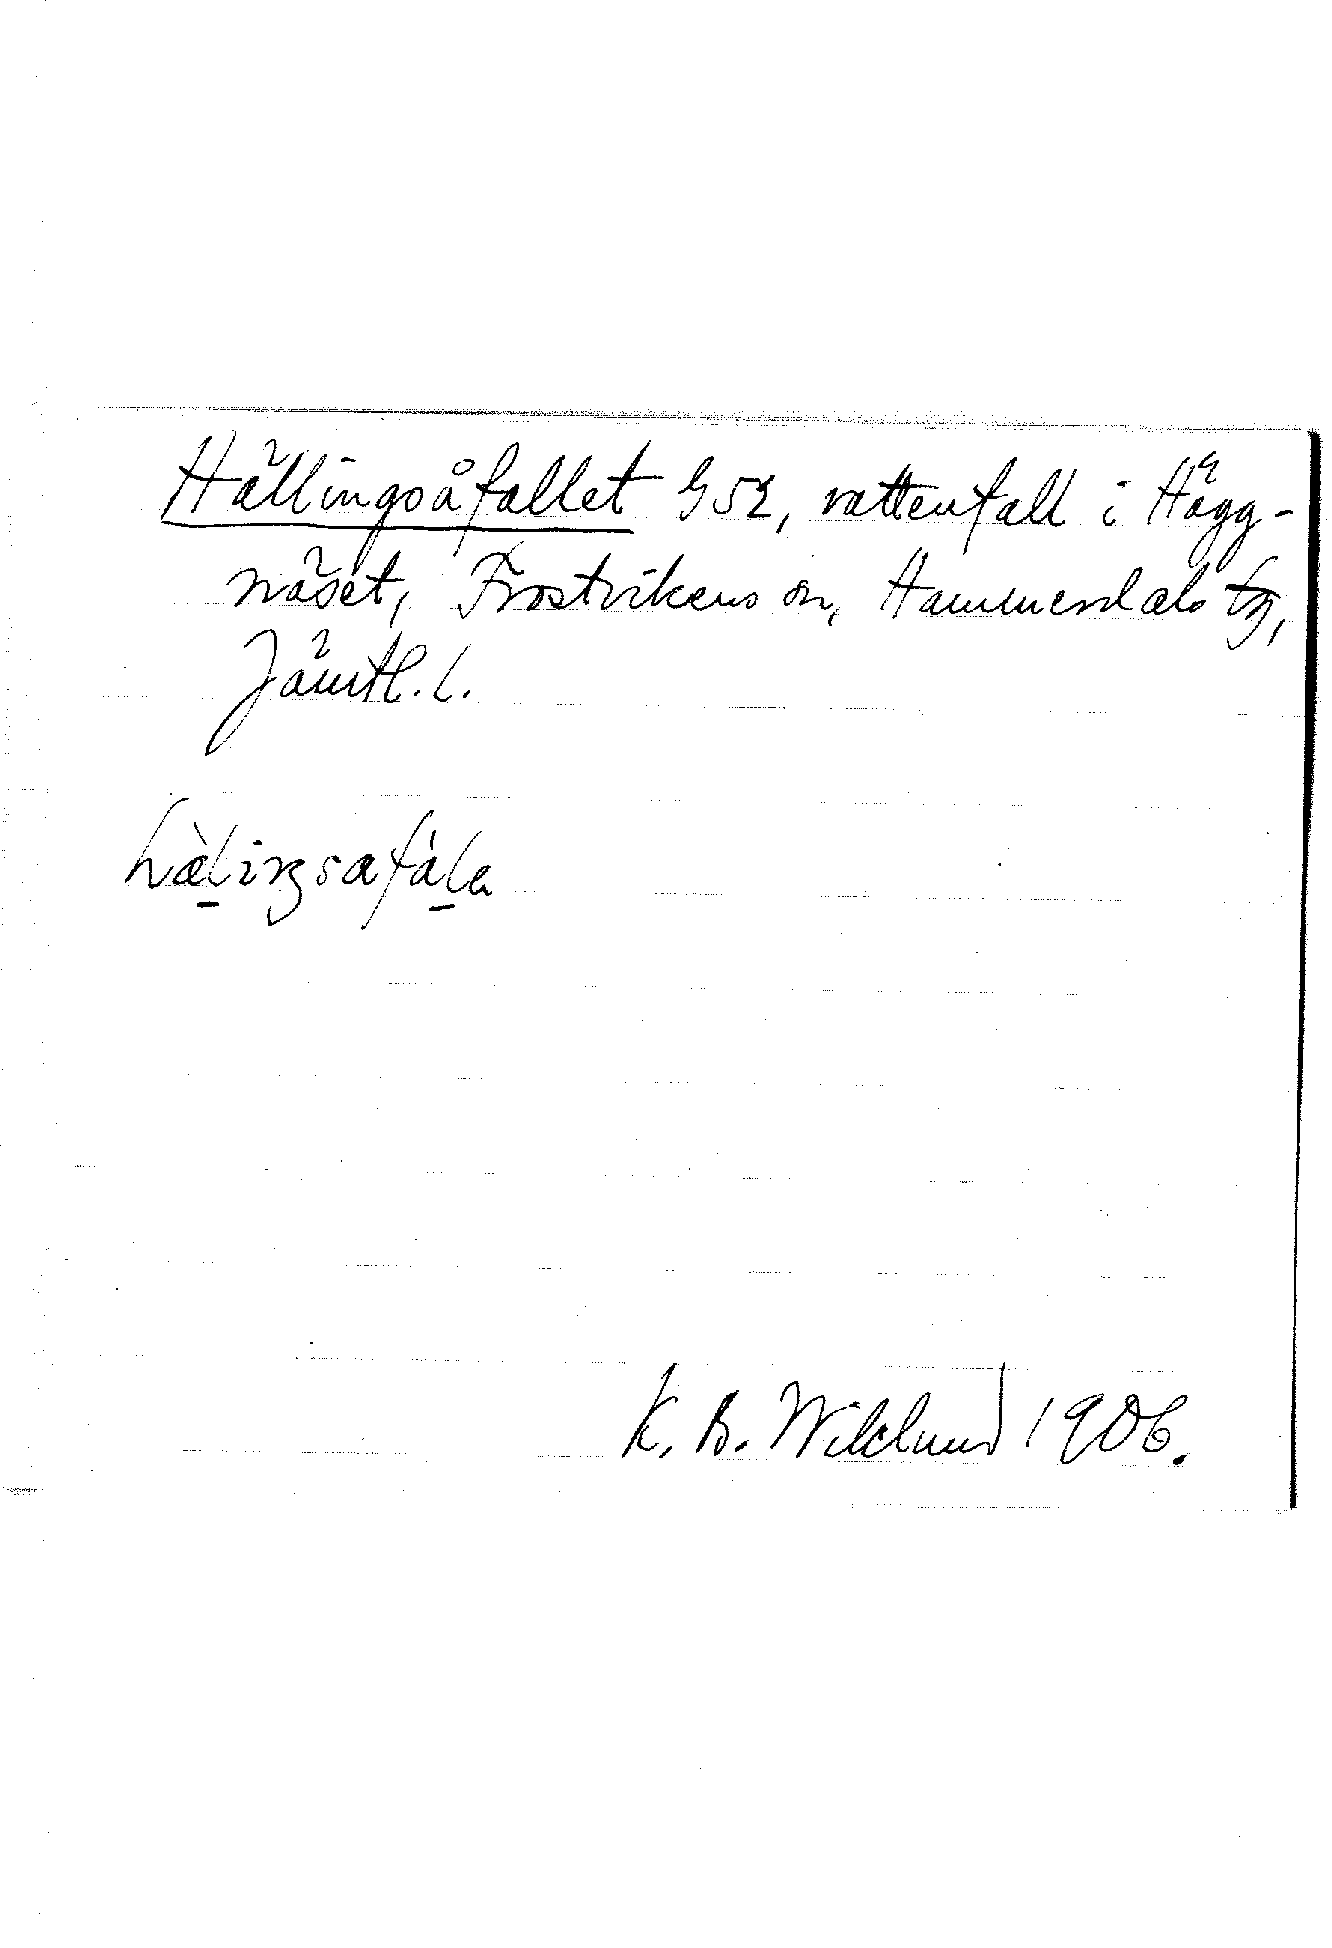 Hällingsåfallet G52, vattenfall i Hägg-
näset, Frostvikens sn, Hammerdals tg,
Jämtl. l.
hæ̀liŋsafála
K. B. Wiklund 1906.